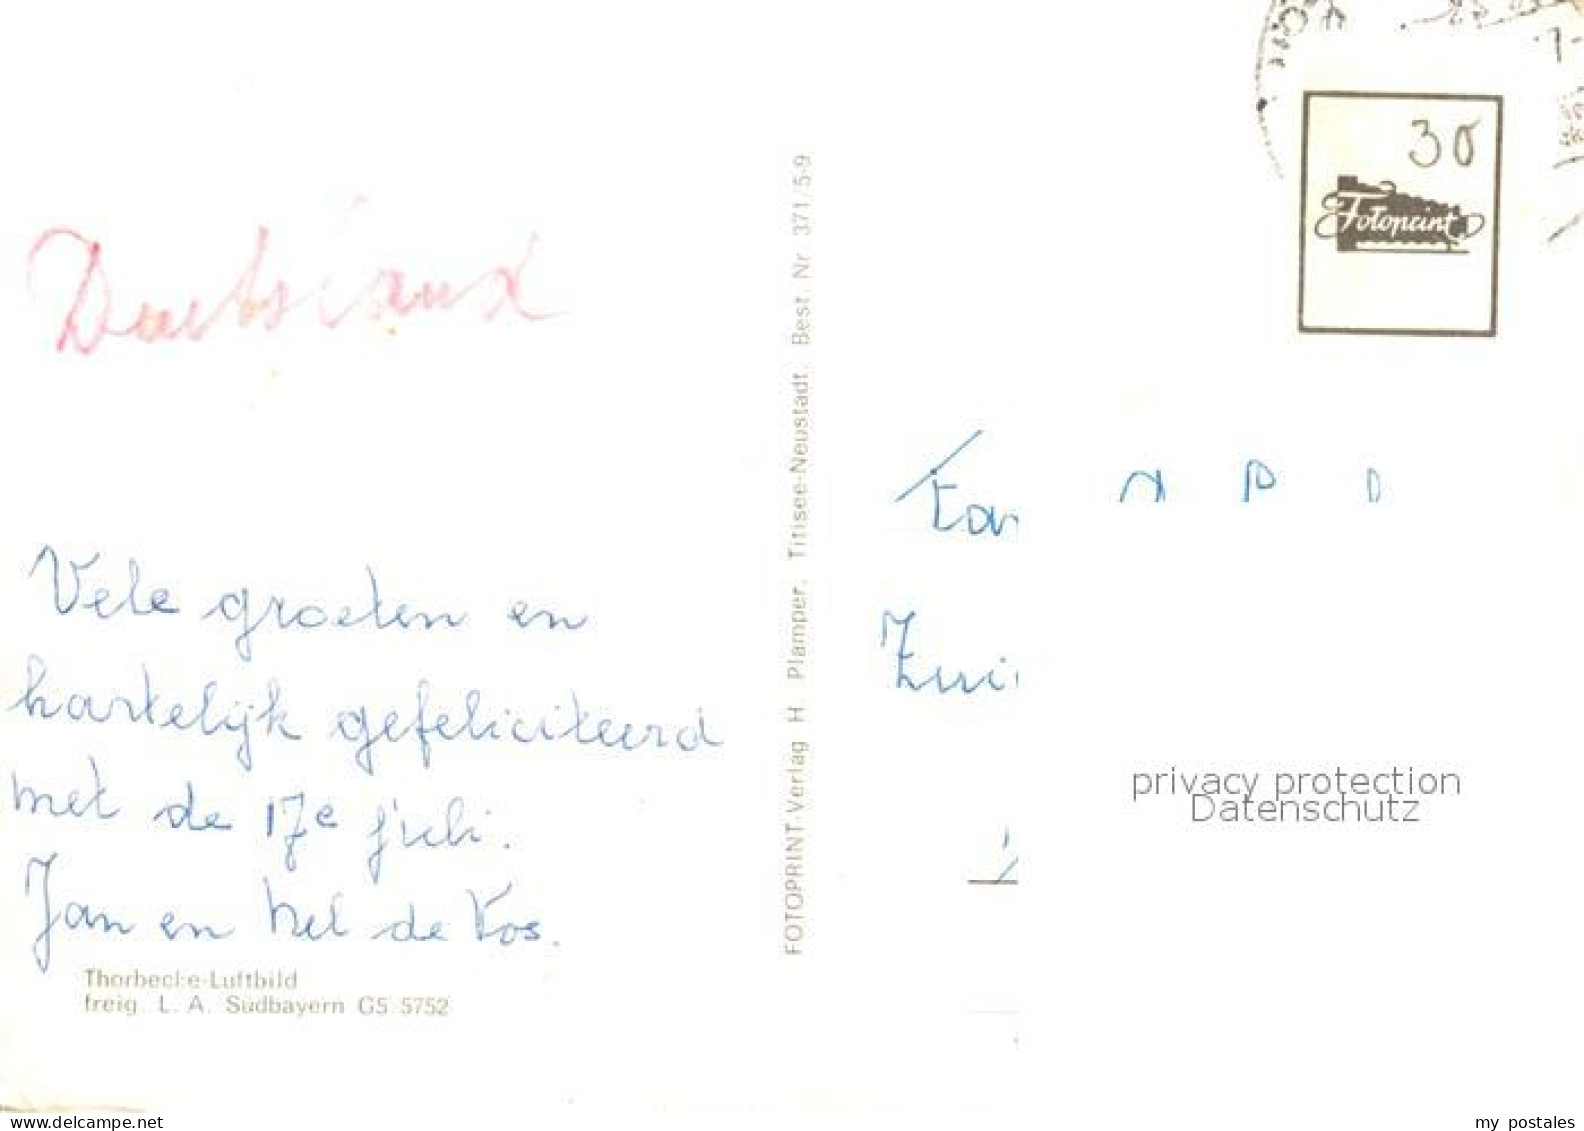 30
Fotoprint
Duitsland
Vele groeten en
hartelijk gefeliciteerd
met de 17e juli.
Jan en Nel de Vos.
Thorbecke-Luftbild
freig. L. A. Südbayern G5 5752
FOTOPRINT-Verlag H. Plamper, Titisee-Neustadt, Best. Nr. 371/5-9
Fa
Zui
privacy protection
Datenschutz
www.delcampe.net
my_postales